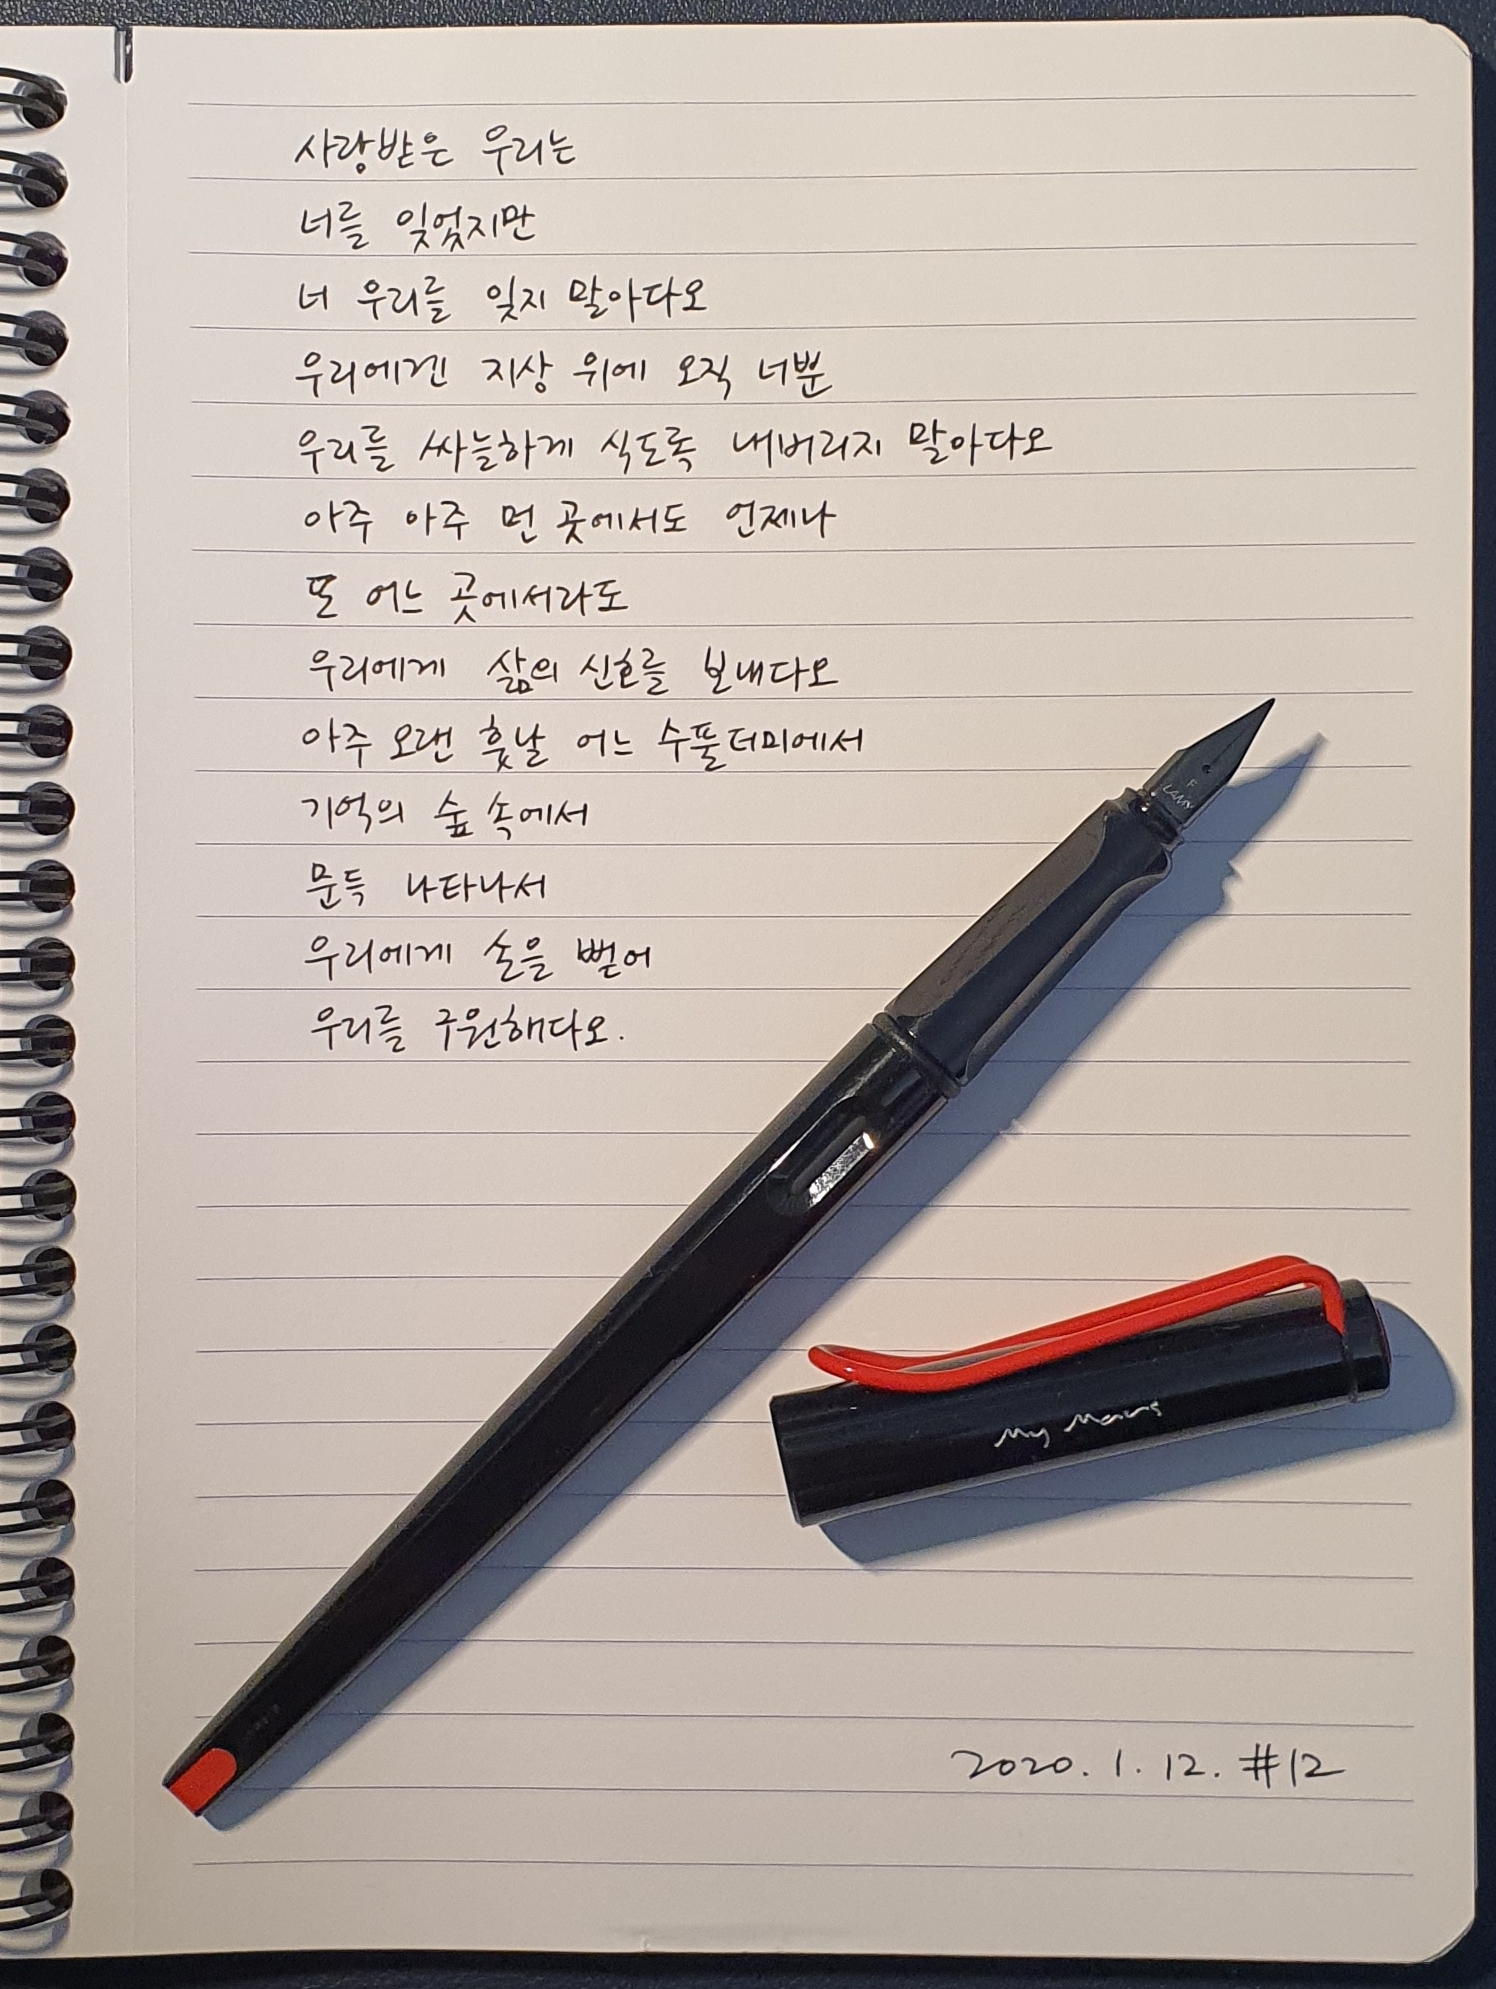 사랑받은 우리는
너를 잊었지만
너 우리를 잊지 말아다오
우리에겐 지상 위에 오직 너뿐
우리를 싸늘하게 식도록 내버리지 말아다오
아주 아주 먼 곳에서도 언제나
또 어느 곳에서라도
우리에게 삶의 신호를 보내다오
아주 오랜 훗날 어느 수풀더미에서
기억의 숲 속에서
문득 나타나서
우리에게 손을 뻗어
우리를 구원해다오.
F
LAMY
My Mars
2020. 1. 12. #12